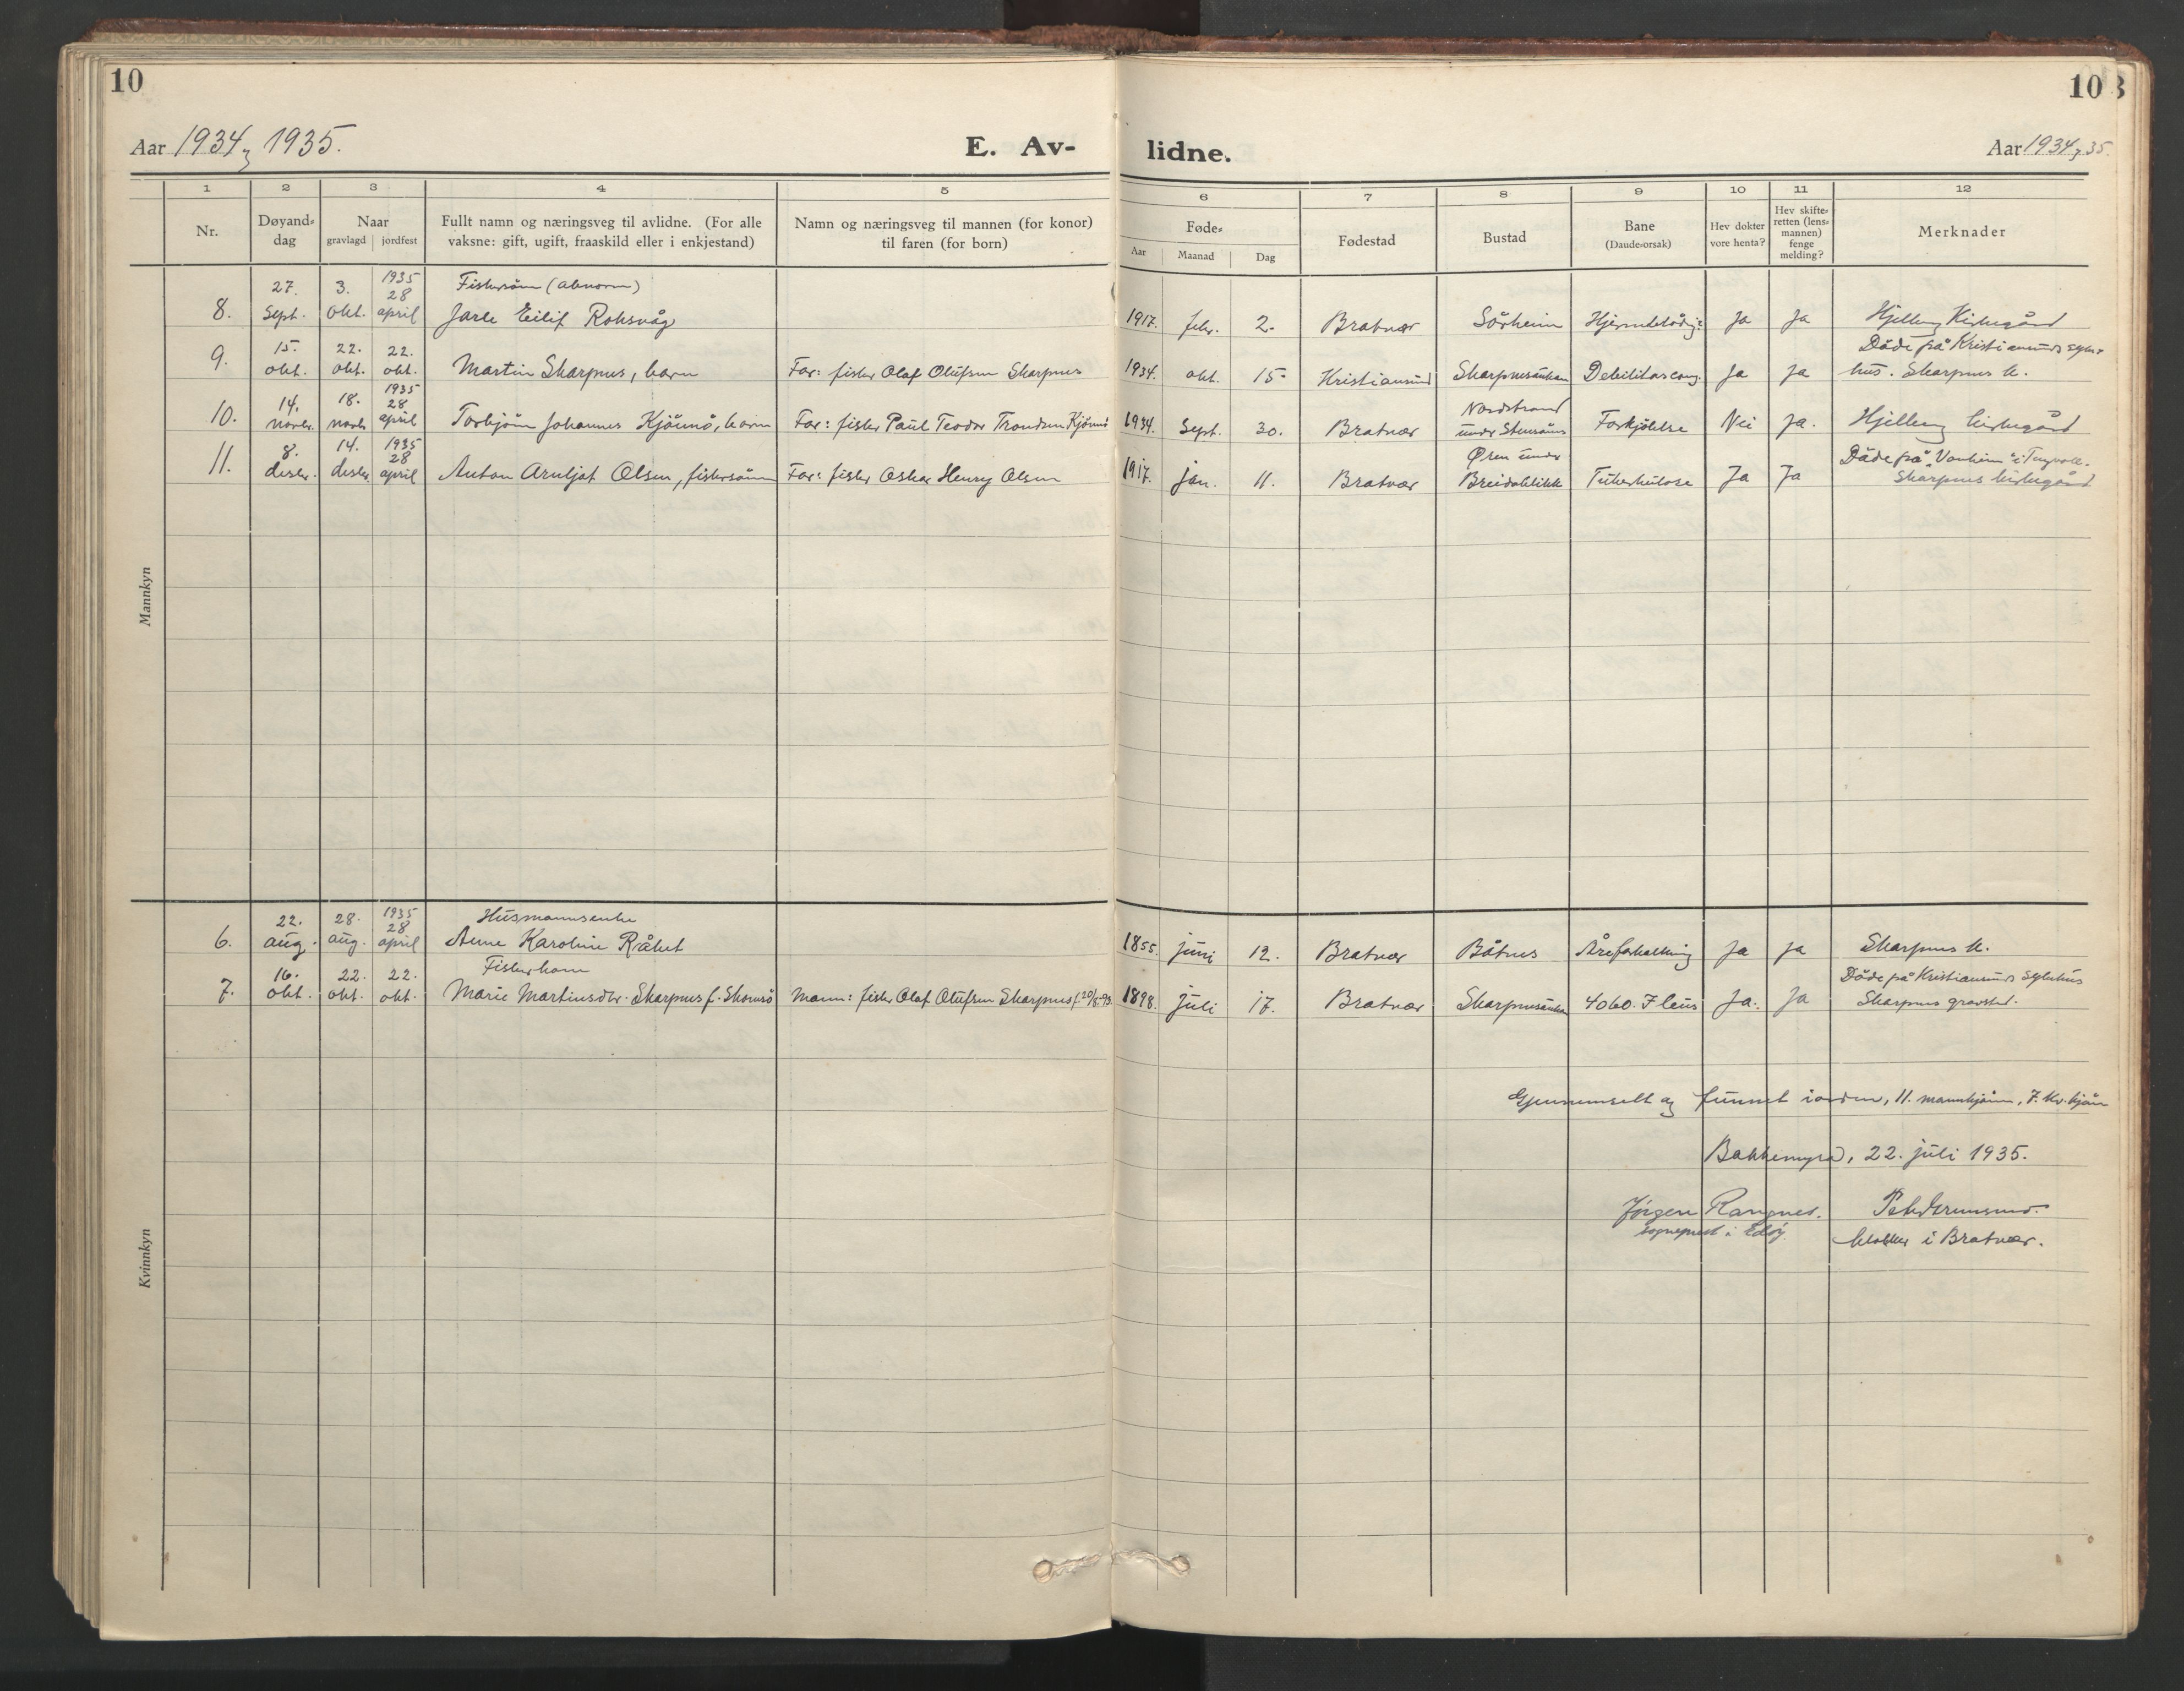 10
10
Aar 1934, 1935.
E. Av-
lidne.
Aar 1934, 35.
1 2 3 4 5
6 7 8 9 10 11 12
Nr.
Døyand-
dag
Naar
gravlagd jordfest
Fullt namn og næringsveg til avlidne. (For alle
vaksne: gift, ugift, fraaskild eller i enkjestand)
Namn og næringsveg til mannen (for konor)
til faren (for born)
Føde-
Aar Maanad Dag
Fødestad
Bustad
Bane
(Daude-orsak)
Hev dokter
vore henta?
Hev skifte-
retten (lens-
mannen)
fenge
melding?
Merknader
Mannkyn
8. 27. Sept. 3. okt. 1935 28 april
Fiskersøn (abnorm)
Jarle Eilif Roksvåg
1917. febr. 2. Bratvær Sörheim Ja Ja
Hjelleng Kirkegård
9. 15. okt. 22. okt. 22. okt.
Martin Skarpnes, barn
Far: fisker Olaf Olufsen Skarpnes
1934. okt. 15 Kristiansund Debilitas cong. Ja Ja
Döde på Kristiansunds syke-
hus. Skarpnes k.
10. 14. novbr. 18. novb. 1935 28 april
Torbjörn Johannes Kjönnö, barn
Far: fisker Paul Teodor Trondsen Kjönnö
1934. Sept. 30. Bratvær
Nordstrand
under
Forkjölelse Nei Ja.
Hjelleng kirkegård
11. 8. desbr. 14. desbr. 1935 28 april
Anton Arnljot Olsen, fiskersönn
Far: fisker Oskar Henry Olsen
1917. jan. 11. Bratvær
Øren under
Breidablikk
Tuberkulose Ja Ja
Döde på "Vonheim" i Tingvoll.
Skarpnes kirkegård
Kvinnkyn
6. 22. aug. 28. aug. 1935 28 april
Husmannsenke
Anne Karoline Råket
1855. juni 12. Bratvær Båtnes Åreforkalkning Ja Ja
Skarpnes k.
7. 16. okt. 22. okt. 22. okt.
Fiskerkone
Marie Martinsdtr. Skarpnes f.
Mann: fisker Olaf Olufsen Skarpnes f. 20/8-93.
1898. juli 17. Bratvær Ja. Ja
Döde på Kristiansunds sykehus
Skarpnes gravsted.
Gjennemsett og funnet i orden, 11. mannkjönn, 7. kv.kjönn
Bakkemyra, 22. juli 1935.
Jörgen Rangnes.
sogneprest i Edöy.
klokker i Bratvær.